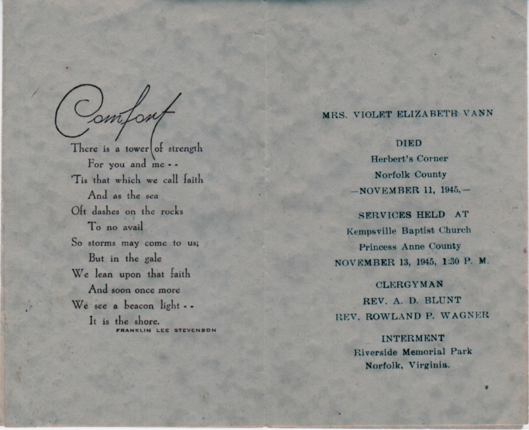 Comfort
There is a tower of strength
For you and me - -
'Tis that which we call faith
And as the sea
Oft dashes on the rocks
To no avail
So storms may come to us;
But in the gale
We lean upon that faith
And soon once more
We see a beacon light - -
It is the shore.
FRANKLIN LEE STEVENSON
MRS. VIOLET ELIZABETH VANN
DIED
Herbert's Corner
Norfolk County
—NOVEMBER 11, 1945.—
SERVICES HELD AT
Kempsville Baptist Church
Princess Anne County
NOVEMBER 13, 1945, 1:30 P. M.
CLERGYMAN
REV. A. D. BLUNT
REV. ROWLAND P. WAGNER
INTERMENT
Riverside Memorial Park
Norfolk, Virginia.